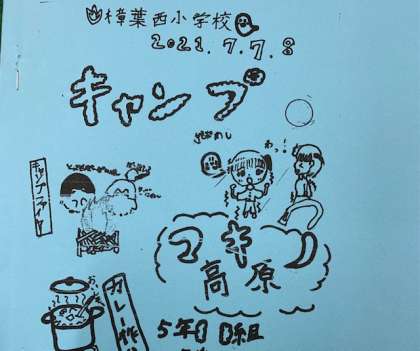 樟葉西小学校
2021.7.7.8
キャンプ
肝だめし
わっ!
キャンプファイヤー
マキノ
高原
カレー作り
5年 組